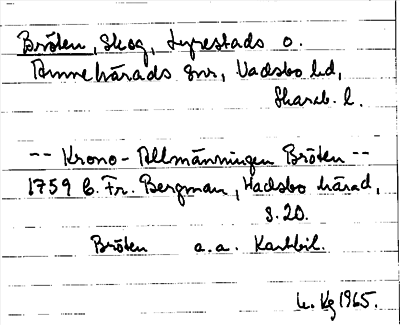 Bröten, Skog, Lyrestads o.
Amnehärads snr, Vadsbo hd,
Skarab. l.
-- Krono-Allmänningen Bröten --
1759 C. Fr. Bergman, Wadsbo härad,
s. 20.
Bröten a.a. Kartbil.
1965.